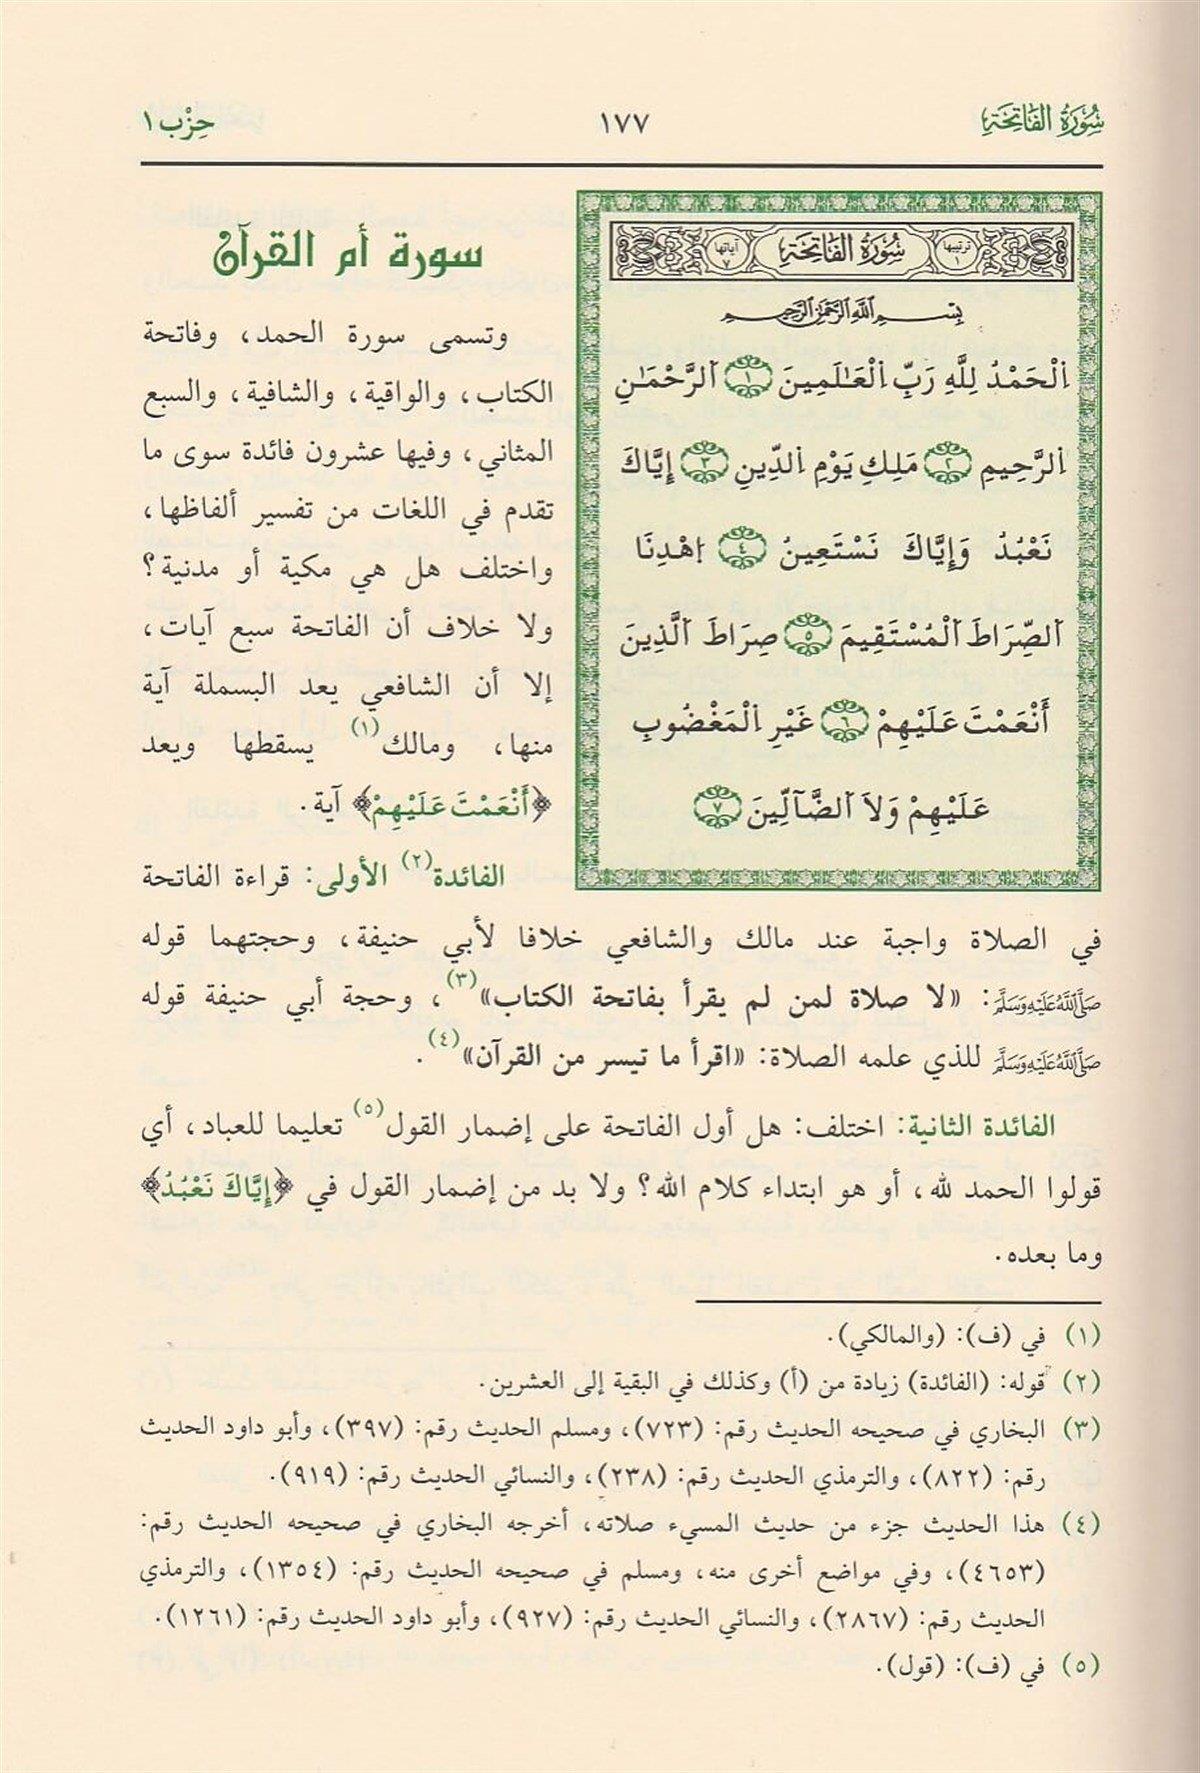 سُورَةُ الفَاتِحَةِ
١٧٧
حِزْب ١
ترتيبها ١
سُورَةُ الفَاتِحَةِ
آياتها ٧
بِسْمِ اللَّهِ الرَّحْمَٰنِ الرَّحِيمِ
اِ۬لْحَمْدُ لِلَّهِ رَبِّ اِ۬لْعَٰلَمِينَ ١ اَ۬لرَّحْمَٰنِ
اِ۬لرَّحِيمِ ٢ مَلِكِ يَوْمِ اِ۬لدِّينِ ٣ إِيَّاكَ
نَعْبُدُ وَإِيَّاكَ نَسْتَعِينُ ٤ اِ۪هْدِنَا
اَ۬لصِّرَاطَ اَ۬لْمُسْتَقِيمَ ٥ صِرَاطَ اَ۬لَّذِينَ
أَنْعَمْتَ عَلَيْهِمْ ٦ غَيْرِ اِ۬لْمَغْضُوبِ
عَلَيْهِمْ وَلَا اَ۬لضَّآلِّينَ ٧
سورة أم القرآن
وتسمى سورة الحمد، وفاتحة
الكتاب، والواقية، والشافية، والسبع
المثاني، وفيها عشرون فائدة سوى ما
تقدم في اللغات من تفسير ألفاظها،
واختلف هل هي مكية أو مدنية؟
ولا خلاف أن الفاتحة سبع آيات،
إلا أن الشافعي يعد البسملة آية
منها، ومالك(١) يسقطها ويعد
﴿أَنْعَمْتَ عَلَيْهِمْ﴾ آية.
الفائدة(٢) الأولى: قراءة الفاتحة
في الصلاة واجبة عند مالك والشافعي خلافا لأبي حنيفة، وحجتهما قوله
ﷺ: «لا صلاة لمن لم يقرأ بفاتحة الكتاب»(٣)، وحجة أبي حنيفة قوله
ﷺ للذي علمه الصلاة: «اقرأ ما تيسر من القرآن»(٤).
الفائدة الثانية: اختلف: هل أول الفاتحة على إضمار القول(٥) تعليما للعباد، أي
قولوا الحمد لله، أو هو ابتداء كلام الله؟ ولا بد من إضمار القول في ﴿إِيَّاكَ نَعْبُدُ﴾
وما بعده.
(١) في (ف): (والمالكي).
(٢) قوله: (الفائدة) زيادة من (أ) وكذلك في البقية إلى العشرين.
(٣) البخاري في صحيحه الحديث رقم: (٧٢٣)، ومسلم الحديث رقم: (٣٩٧)، وأبو داود الحديث
رقم: (٨٢٢)، والترمذي الحديث رقم: (٢٣٨)، والنسائي الحديث رقم: (٩١٩).
(٤) هذا الحديث جزء من حديث المسيء صلاته، أخرجه البخاري في صحيحه الحديث رقم:
(٤٦٥٣)، وفي مواضع أخرى منه، ومسلم في صحيحه الحديث رقم: (١٣٥٤)، والترمذي
الحديث رقم: (٢٨٦٧)، والنسائي الحديث رقم: (٩٢٧)، وأبو داود الحديث رقم: (١٢٦١).
(٥) في (ف): (قول).